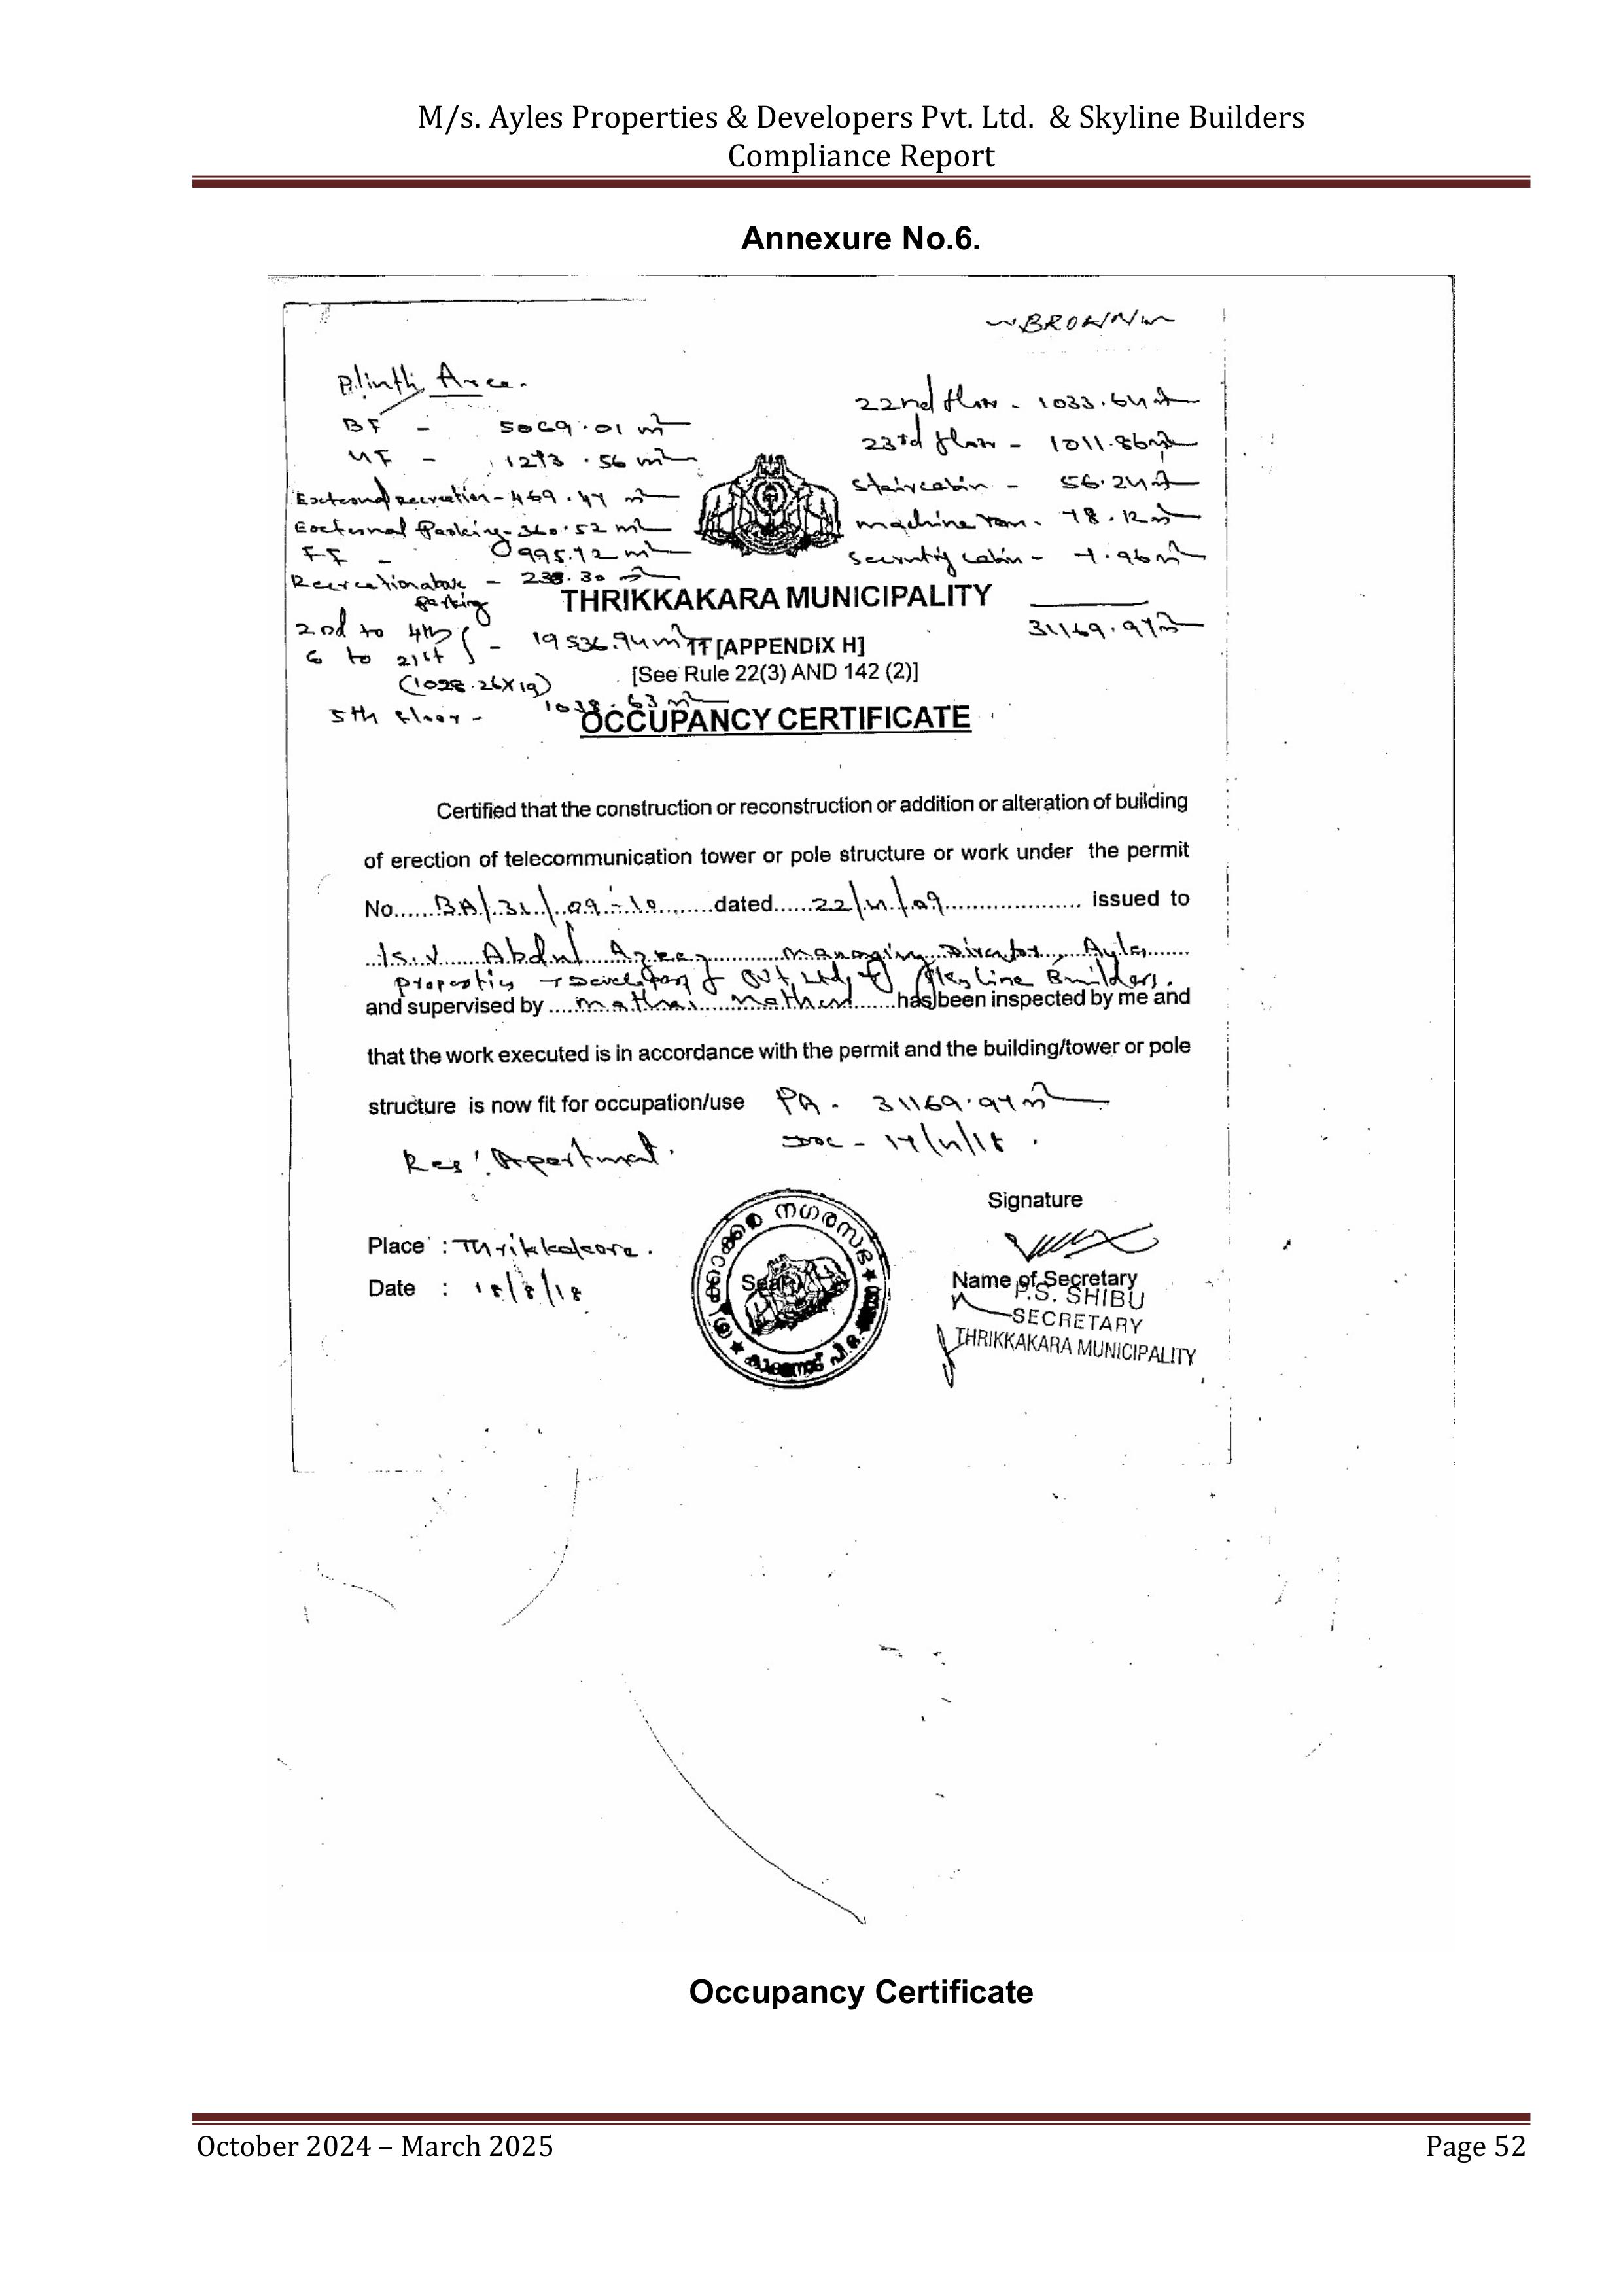 M/s. Ayles Properties & Developers Pvt. Ltd. & Skyline Builders
Compliance Report
Annexure No.6.
BROWN
Plinth Area.
BF - 5069.01 m²
1273.56 m²
External recreation - 469.47 m²
External Parking - 360.52 m²
FF - 995.72 m²
Recreation above parking - 238.30 m²
2nd to 4th
6 to 21st - 19536.94 m²
(1028.26X19)
5th floor - 1038.63 m²
22nd floor - 1033.64 m²
23rd floor - 1011.86 m²
staircabin - 56.24 m²
machine room - 78.12 m²
security cabin - 7.96 m²
31169.97 m²
THRIKKAKARA MUNICIPALITY
[APPENDIX H]
[See Rule 22(3) AND 142 (2)]
OCCUPANCY CERTIFICATE
Certified that the construction or reconstruction or addition or alteration of building
of erection of telecommunication tower or pole structure or work under the permit
No. BA/31/09-10 dated 22/11/09 issued to
K.V Abdul Azeez Managing Director, Ayles
Properties & Developers Pvt. Ltd, & Skyline Builders.
and supervised by Mathai Mathew has been inspected by me and
that the work executed is in accordance with the permit and the building/tower or pole
structure is now fit for occupation/use PA - 31169.97 m²
Res' Apartment.
Signature
Place : Thrikkakara.
Date : 18/8/18
Seal
നഗരസഭ
Name of Secretary
P.S. SHIBU
SECRETARY
THRIKKAKARA MUNICIPALITY
Occupancy Certificate
October 2024 – March 2025
Page 52